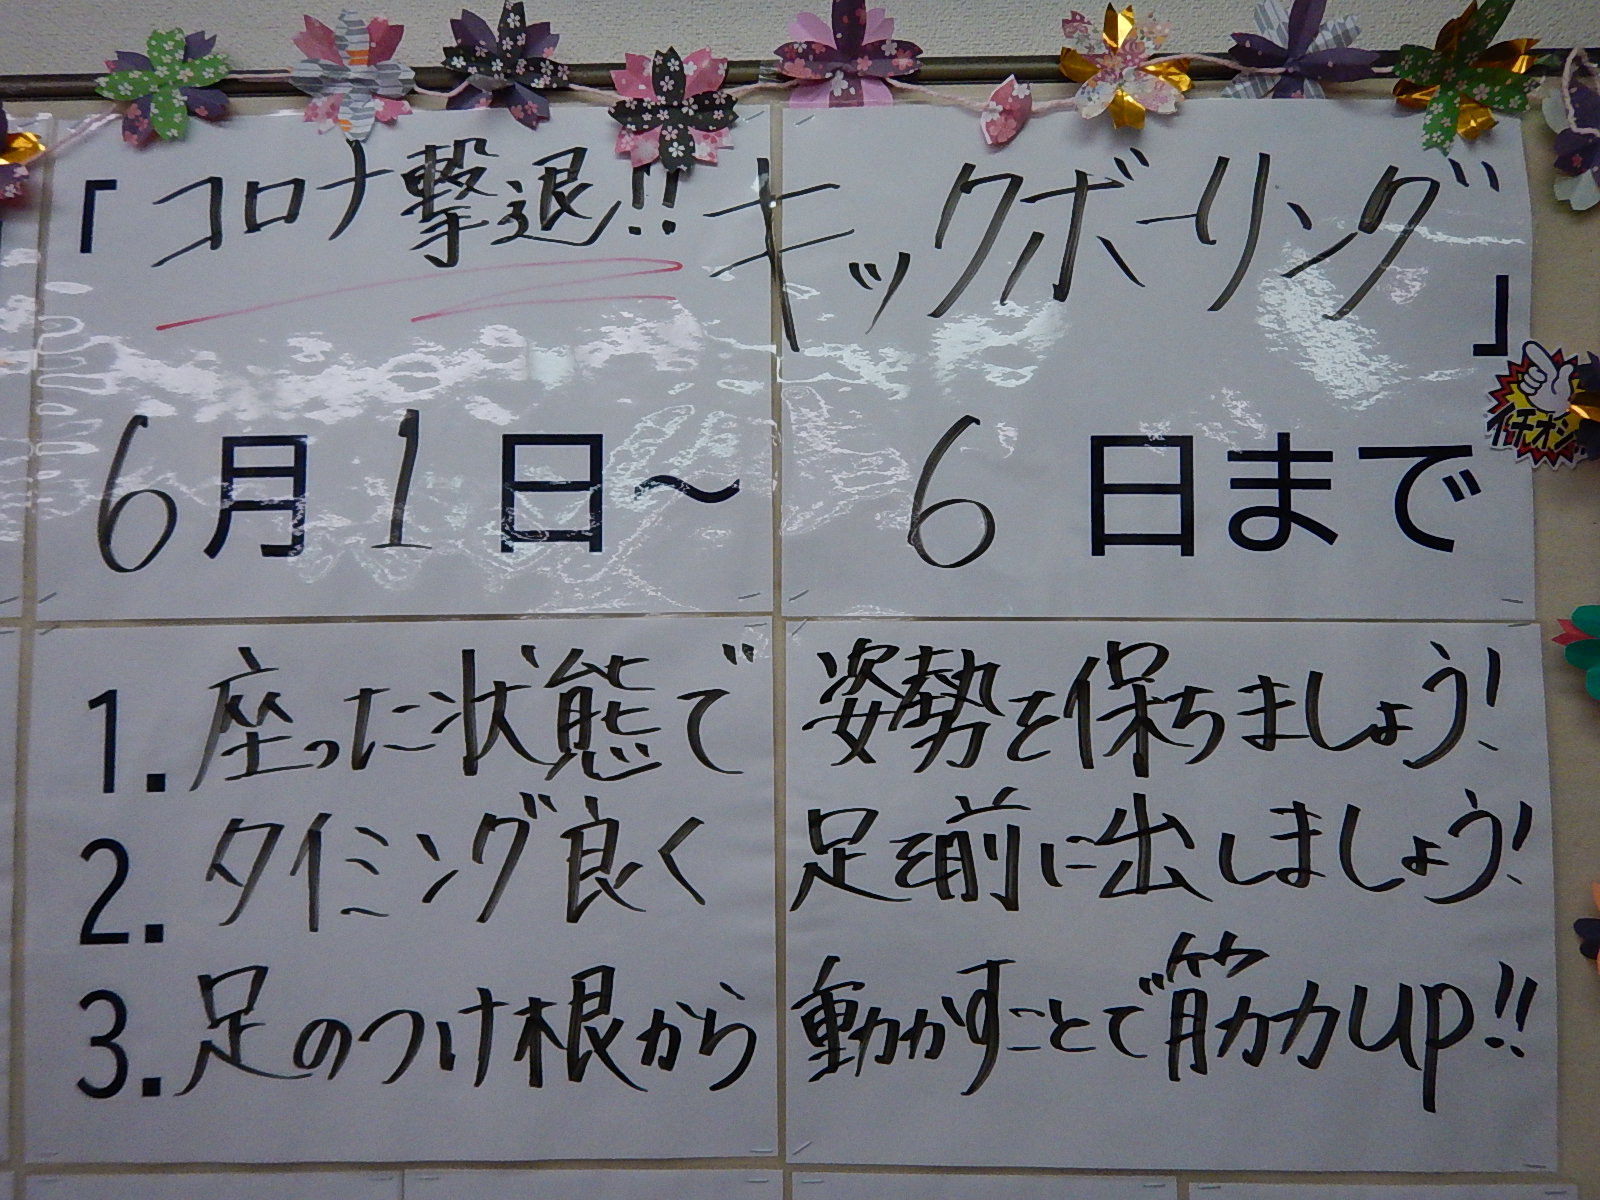 「コロナ撃退!!キックボーリング」
イチオシ
6月1日~6日まで
1.座った状態で姿勢を保ちましょう!
2.タイミング良く足を前に出しましょう!
3.足のつけ根から動かすことで筋力up!!